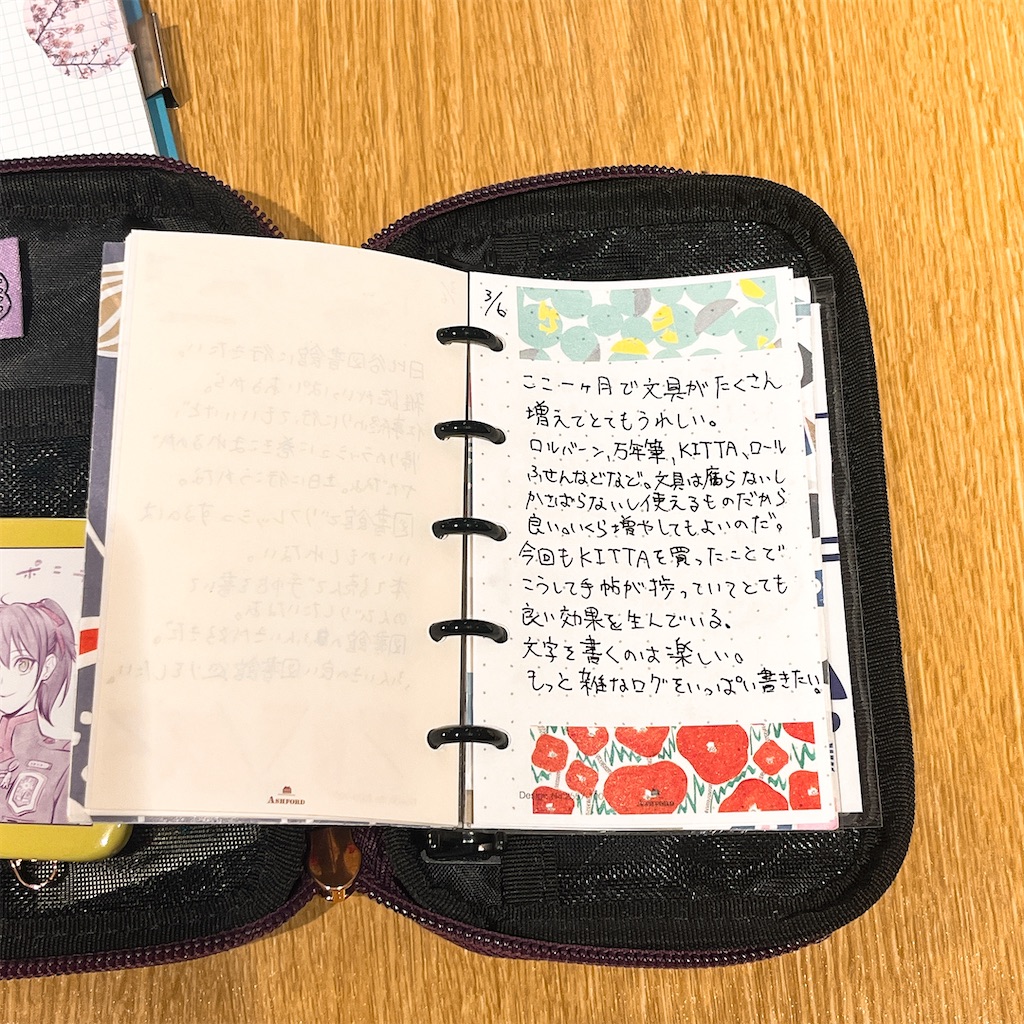 3/6
ここ一ヶ月で文具がたくさん
増えてとてもうれしい。
ロルバーン、万年筆、KITTA、ロール
ふせんなどなど。文具は腐らないし
かさばらないし使えるものだから
良い。いくら増やしてもよいのだ。
今回もKITTAを買ったことで
こうして手帖が捗っていてとても
良い効果を生んでいる。
文字を書くのは楽しい。
もっと雑なログをいっぱい書きたい。
ASHFORD
ASHFORD
ポニー